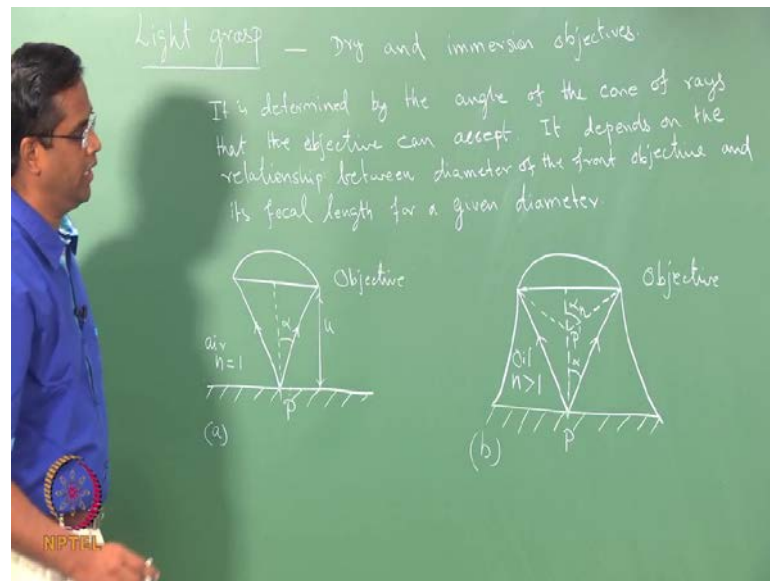 Light grasp — Dry and immersion objectives.
It is determined by the angle of the cone of rays
that the objective can accept. It depends on the
relationship between diameter of the front objective and
its focal length for a given diameter.
Objective
α
u
air
n=1
P
(a)
Objective
αn
P'
Oil
n>1
α
P
(b)
NPTEL